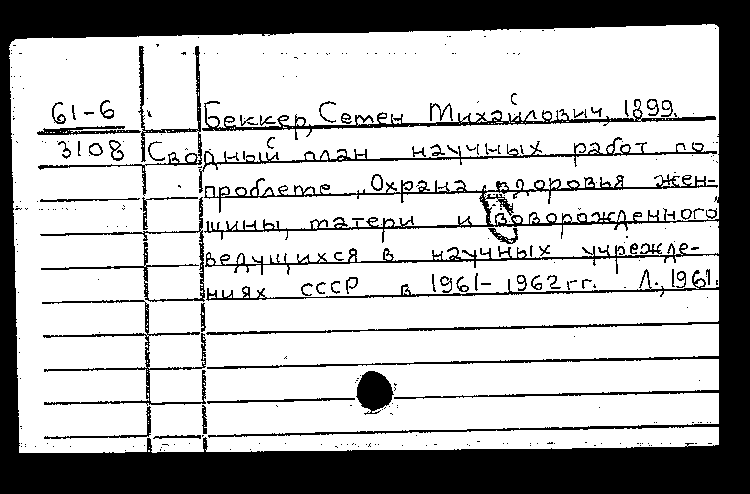 61-6 Беккер, Семен Михайлович, 1899.
3108 Сводный план научных работ по
проблеме „Охрана здоровья жен-
щины, матери и воворожденного"
ведущихся в научных учрежде-
ниях СССР в 1961-1962 гг. Л., 1961.